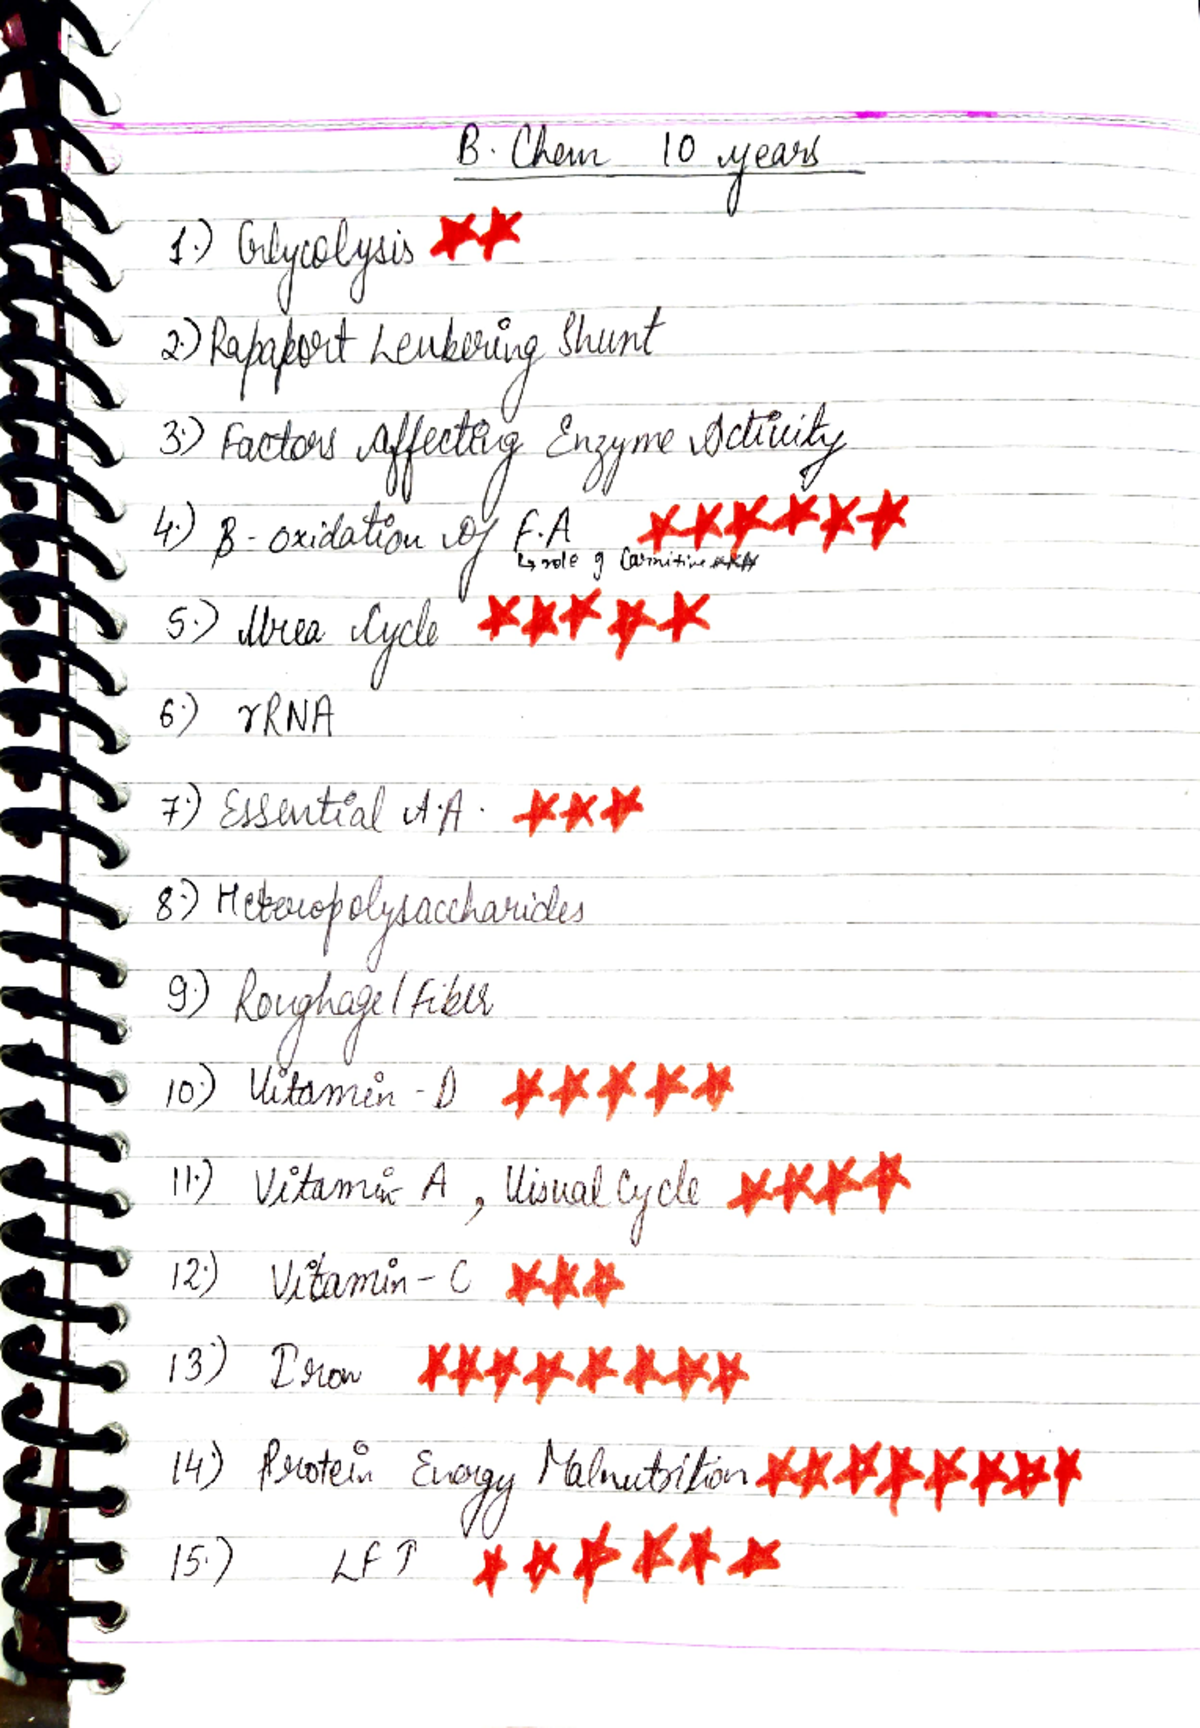 B. Chem 10 years
1.) Glycolysis ★★
2.) Rapaport Leubering Shunt
3.) Factors Affecting Enzyme Activity
4.) B-oxidation of F.A ★★★★★★
↳ role of Carnitine ★★★
5.) Urea Cycle ★★★★★
6.) rRNA
7.) Essential A.A. ★★★
8.) Heteropolysaccharides
9.) Roughage/Fiber
10.) Vitamin-D ★★★★★
11.) Vitamin A, Visual Cycle ★★★★
12.) Vitamin-C ★★★
13.) Iron ★★★★★★★★
14.) Protein Energy Malnutrition ★★★★★★★★
15.) LFT ★★★★★★